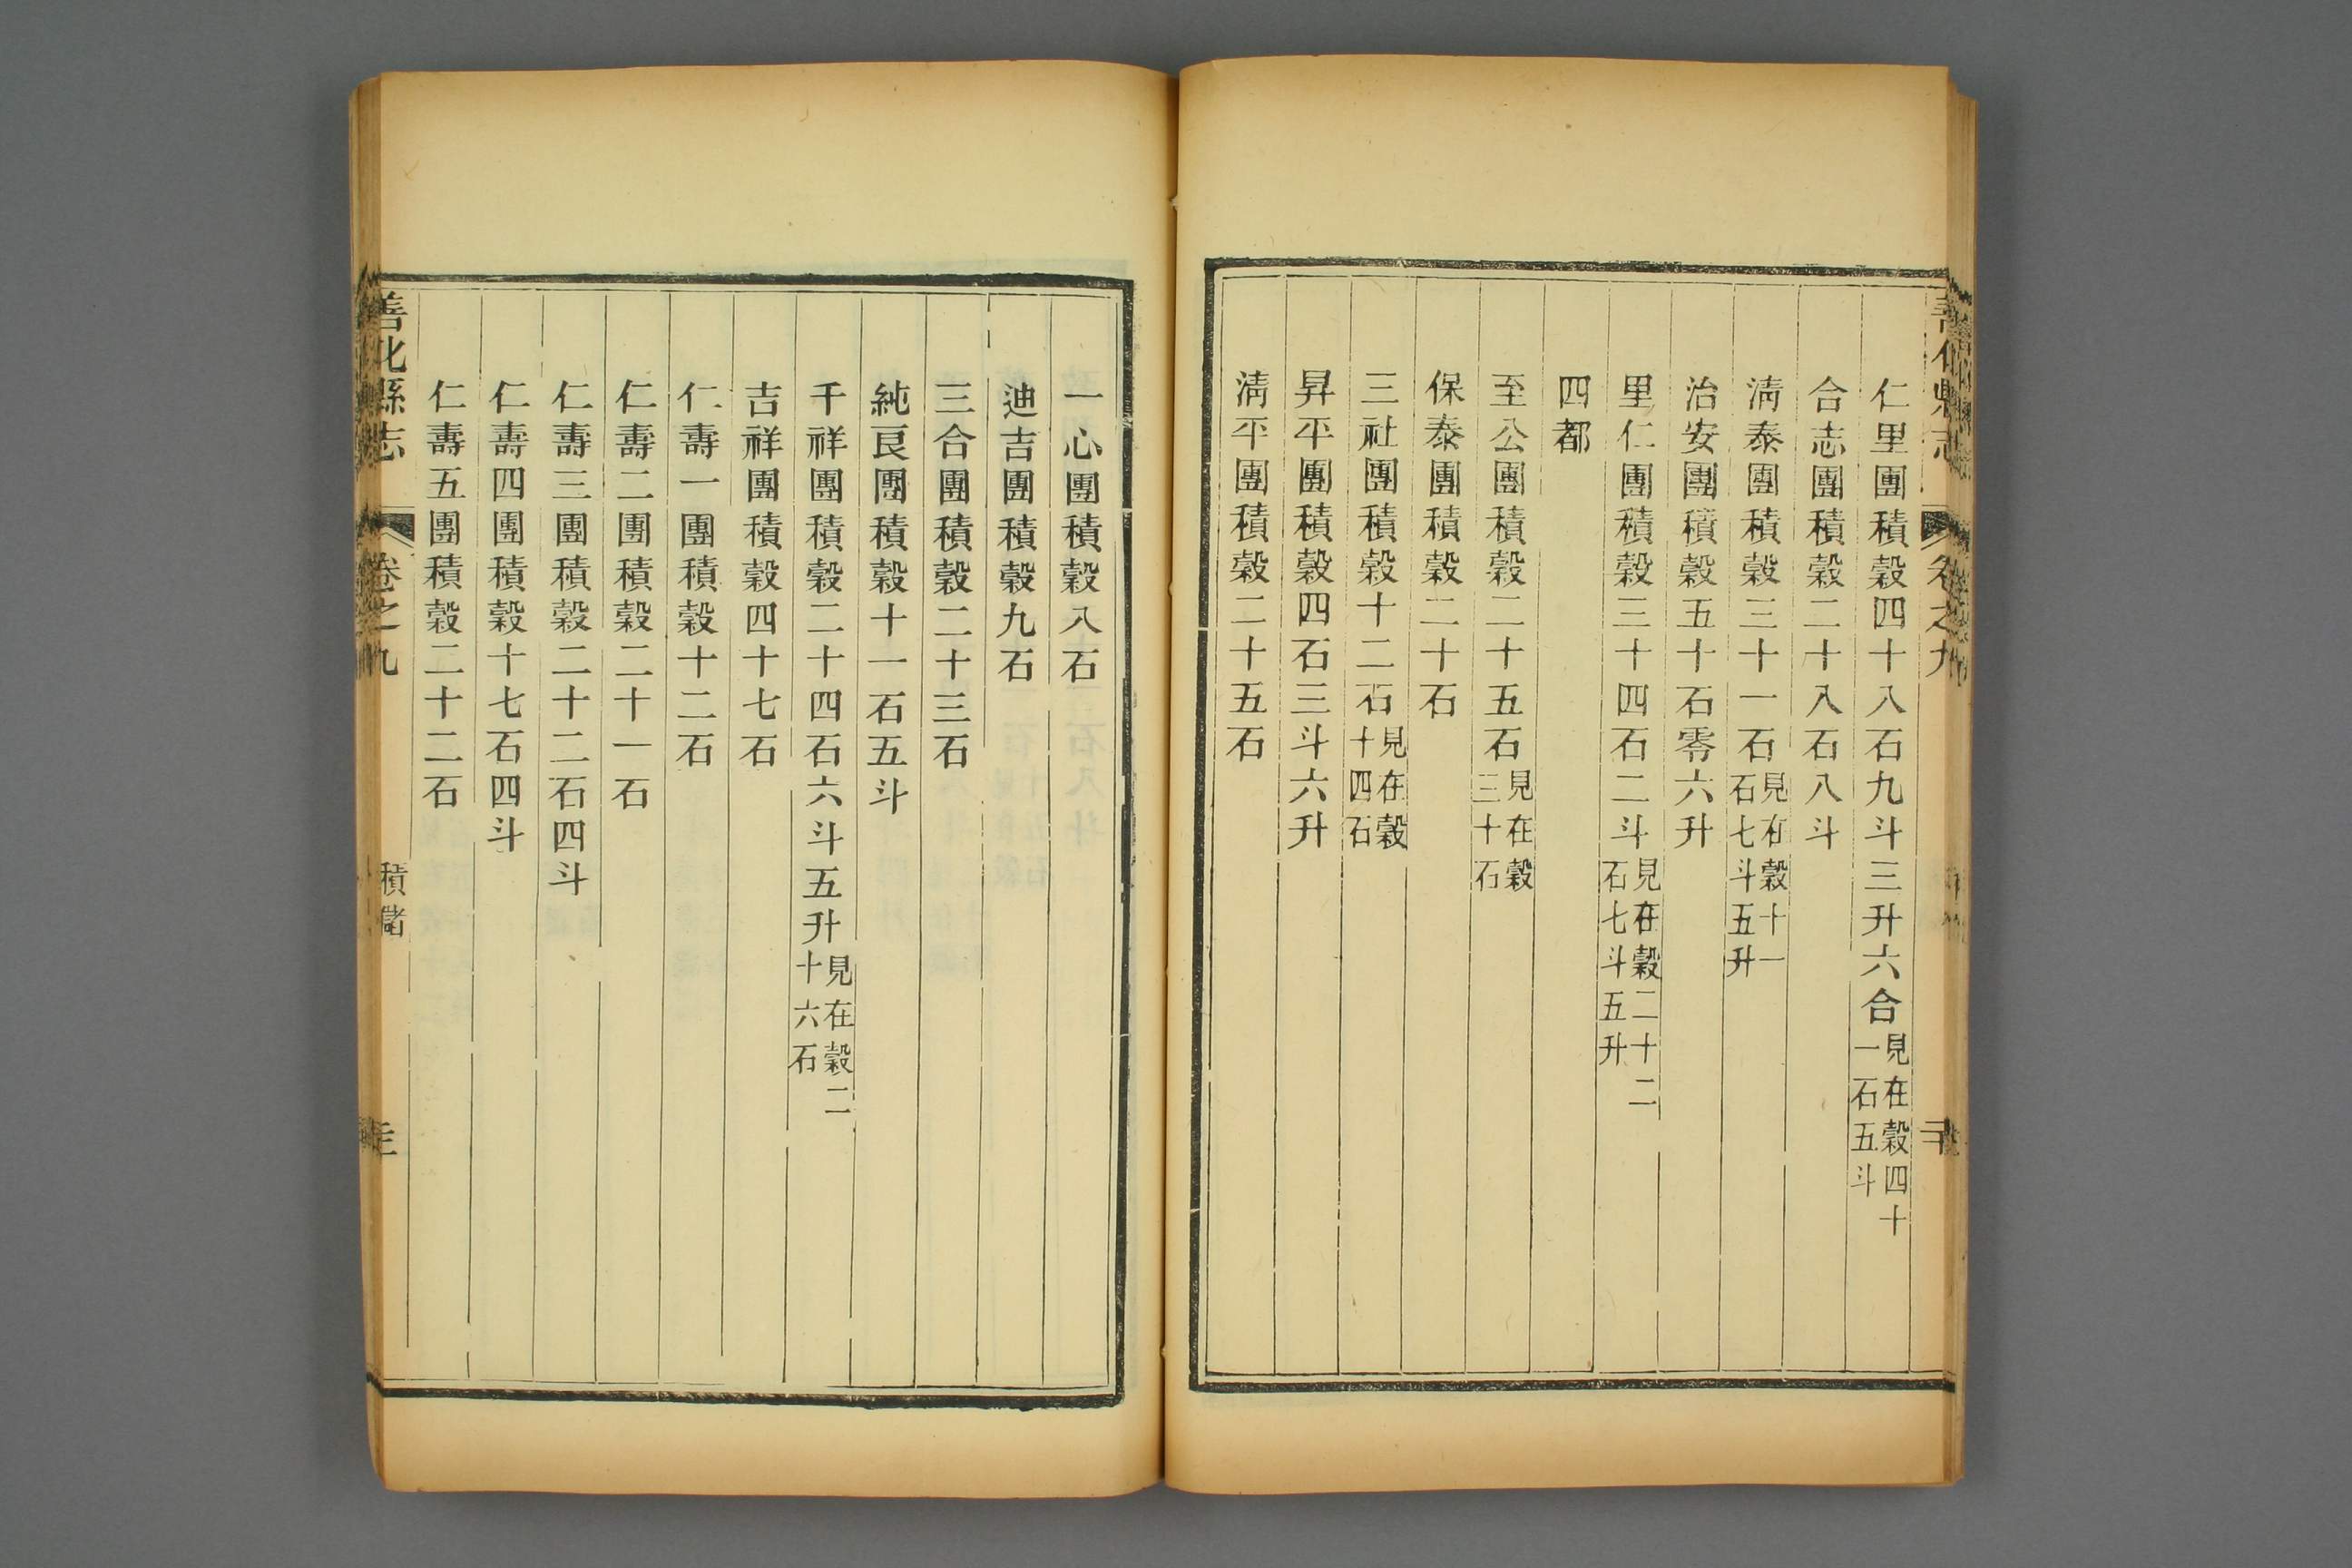 仁里團積穀四十八石九斗三升六合見在穀四十一石五斗
合志團積穀二十八石八斗
淸泰團積穀三十一石見在穀十一石七斗五升
治安團積穀五十石零六升
里仁團積穀三十四石二斗見在穀二十二石七斗五升
四都
至公團積穀二十五石見在穀三十石
保泰團積穀二十石
三社團積穀十二石見在穀十四石
昇平團積穀四石三斗六升
淸平團積穀二十五石
一心團積穀八石
迪吉團積穀九石
三合團積穀二十三石
純良團積穀十一石五斗
千祥團積穀二十四石六斗五升見在穀二十六石
吉祥團積穀四十七石
仁壽一團積穀十二石
仁壽二團積穀二十一石
仁壽三團積穀二十二石四斗
仁壽四團積穀十七石四斗
仁壽五團積穀二十二石
善化縣志 卷之九 積儲